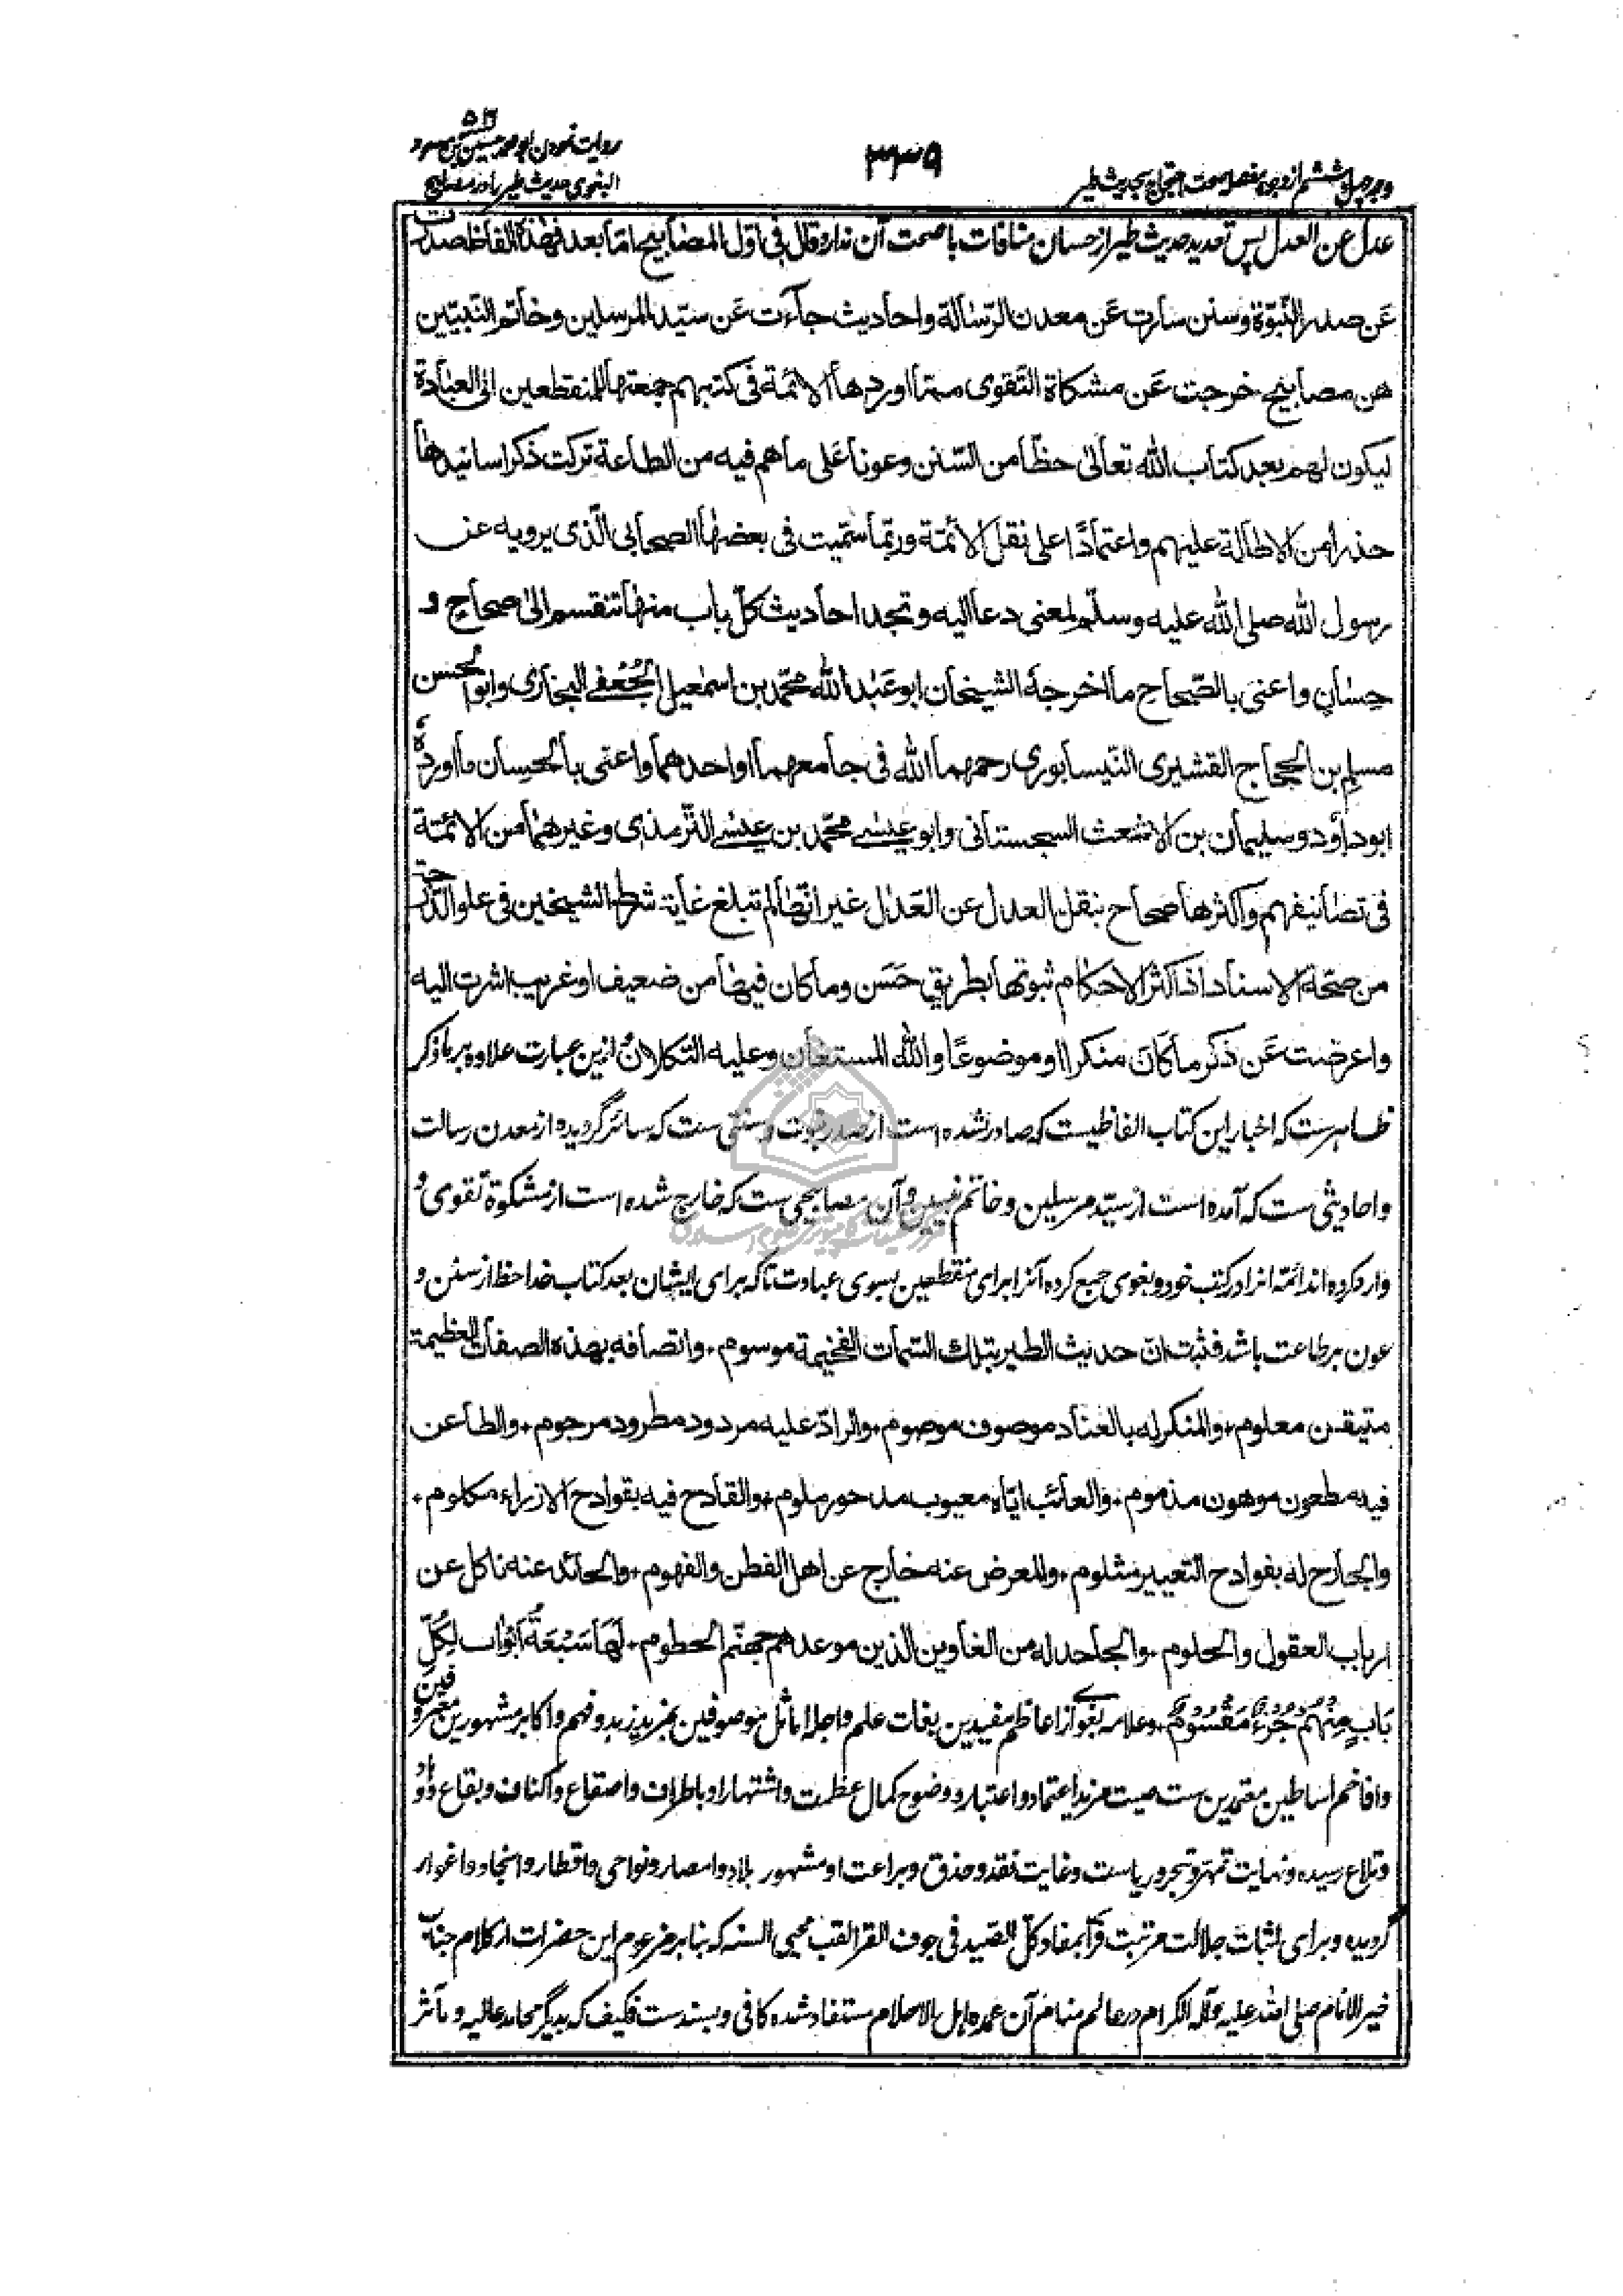 روایت نمودن ابو محمد حسین بن مسعود
البغوی حدیث طیر را در مصابیح
۳۳۹
وجه چهل و ششم از وجوه مفصله صحت احتجاج بحدیث طیر
عدل عن العدل پس تحدید حدیث طیر از حسان منافات با صحت آن ندارد قال فی اول المصابیح اما بعد فهذه الفاظ صدرت
عن صدر النبوّة وسنن سارت عن معدن الرّسالة واحادیث جاءت عن سیّد المرسلین وخاتم النّبیّین
هن مصابیح خرجت عن مشکاة التّقوی ممّا اوردها الائمّة فی کتبهم جمعتها للمنقطعین الی العبادة
لیکون لهم بعد کتاب الله تعالی حظّا من السّنن وعونا علی ما هم فیه من الطاعة ترکت ذکر اسانیدها
حذرا من الاطالة علیهم واعتمادًا علی نقل الائمّة وربّما سمّیت فی بعضها الصحابی الّذی یرویه عن
رسول الله صلی الله علیه وسلّم لمعنی دعا الیه وتجد احادیث کلّ باب منها تنقسم الی صحاح و
حِسان واعنی بالصّحاح ما اخرجه الشیخان ابو عبد الله محمّد بن اسمعیل الجُعْفی البخاری وابو الحسن
مسلم بن الحجاج القشیری النّیسابوری رحمهما الله فی جامعهما او احدهما واعنی بالحِسان ما اورده
ابو داؤد و سلیمان بن الاشعث السجستانی وابو عیسی محمّد بن عیسی التّرمذی وغیرهما من الائمّة
فی تصانیفهم واکثرها صحاح بنقل العدل عن العَدل غیر انّها لم تبلغ غایة شرط الشیخین فی علو الدّرجة
من صحّة الاسناد اذ اکثر الاحکام ثبوتها بطریق حَسَن وما کان فیها من ضعیف او غریب اشرت الیه
واعرضت عن ذکر ما کان منکرا او موضوعًا والله المستعان وعلیه التکلان ازین عبارت علاوه بر ما ذکر
ظاهرست که اخبار این کتاب الفاظیست که صادر شده است از صدر نبوت و سننی ست که سائر گردیده از معدن رسالت
و احادیثی ست که آمده است از سیّد مرسلین و خاتم نبیین و آن مصابیحی ست که خارج شده است از مشکوة تقوی و
وارد کرده اند ائمه انرا در کتب خود و بغوی جمع کرده آنرا برای منقطعین بسوی عبادت تا که برای ایشان بعد کتاب خدا حظ از سنن و
عون بر طاعت باشد فثبت انّ حدیث الطیر بتلک السّمات الفخیمة موسوم ٠ واتصافه بهذه الصفات العظیمة
متیقن معلوم ٠ والمنکر له بالعناد موصوف موصوم ٠ والرادّ علیه مردود مطرود مرجوم ٠ والطاعن
فیه مطعون موهون مذموم ٠ والعائب ایّاه معیوب مدحور ملوم ٠ والقادح فیه بقوادح الازراء مکلوم ٠
والجارح له بفوادح التعییر مثلوم ٠ والمعرض عنه خارج عن اهل الفطن والفهوم ٠ والحائد عنه ناکل عن
ارباب العقول والحلوم ٠ والجاحد له من الغاوین الذین موعدهم جهنّم الحطوم ٠ لَهَا سَبْعَةُ اَبْوَاب لِکُلِّ
بَابٍ مِنْهُمْ جُزْءٌ مَقْسُوْمٌ ٠ و علامه بغوی از اعاظم مفیدین بغات علم و اجلهٔ اماثل موصوفین بمزید زهد و فهم و اکابر مشهورین معروفین
و افاخم اساطین معتمدین ست صیت مزید اعتماد و اعتبار و وضوح کمال عظمت و اشتهار او باطراف و اصقاع و اکناف و بقاع و
وتلاع رسیده و نهایت تمهّر و تبحر و ریاست و غایت نقد و حذق و براعت او مشهور بلاد و امصار و نواحی و اقطار و انجاد و اغوار
گردیده و برای اثبات جلالت مرتبت و بمفاد کلّ الصّید فی جوف الفرا لقب محیی السنه که بنا بر مزعوم این حضرات از کلام جناب
خیر الانام صلی الله علیه وآله الکرام در عالم منام آن عمده اهل الاحلام مستفاد شده کافی و بسندست فکیف که بدیگر محامد عالیه و مآثر